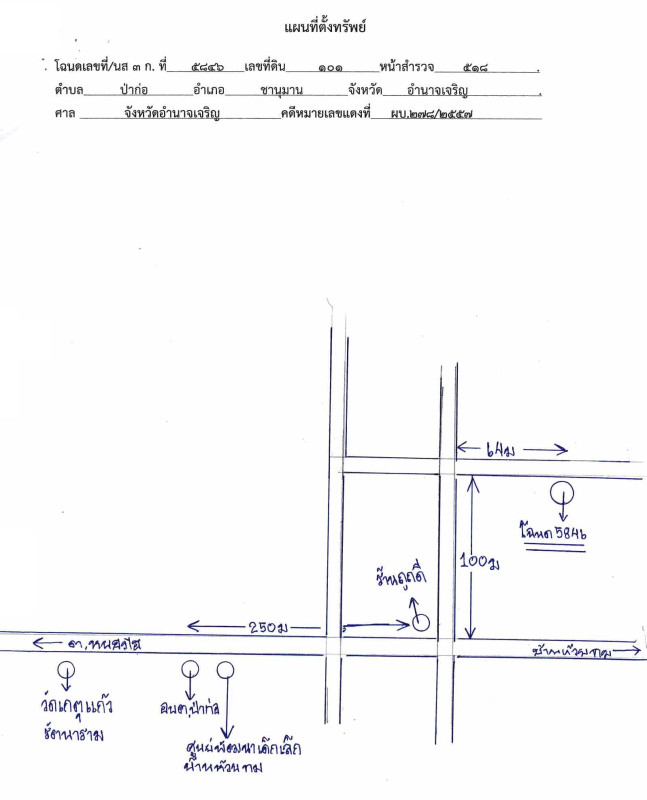 แผนที่ตั้งทรัพย์
โฉนดเลขที่/นส ๓ ก. ที่ ๕๘๔๖ เลขที่ดิน ๑๐๑ หน้าสำรวจ ๕๑๘
ตำบล ป่าก่อ อำเภอ ชานุมาน จังหวัด อำนาจเจริญ
ศาล จังหวัดอำนาจเจริญ คดีหมายเลขแดงที่ ผบ.๒๗๘/๒๕๕๗
64ม
โฉนด 5846
100ม
ร้านถูกดี
250ม
บ้านหัวนกม
วัดเกตุแก้ว
รัตนาราม
อบต.ป่าก่อ
ศูนย์พัฒนาเด็กเล็ก